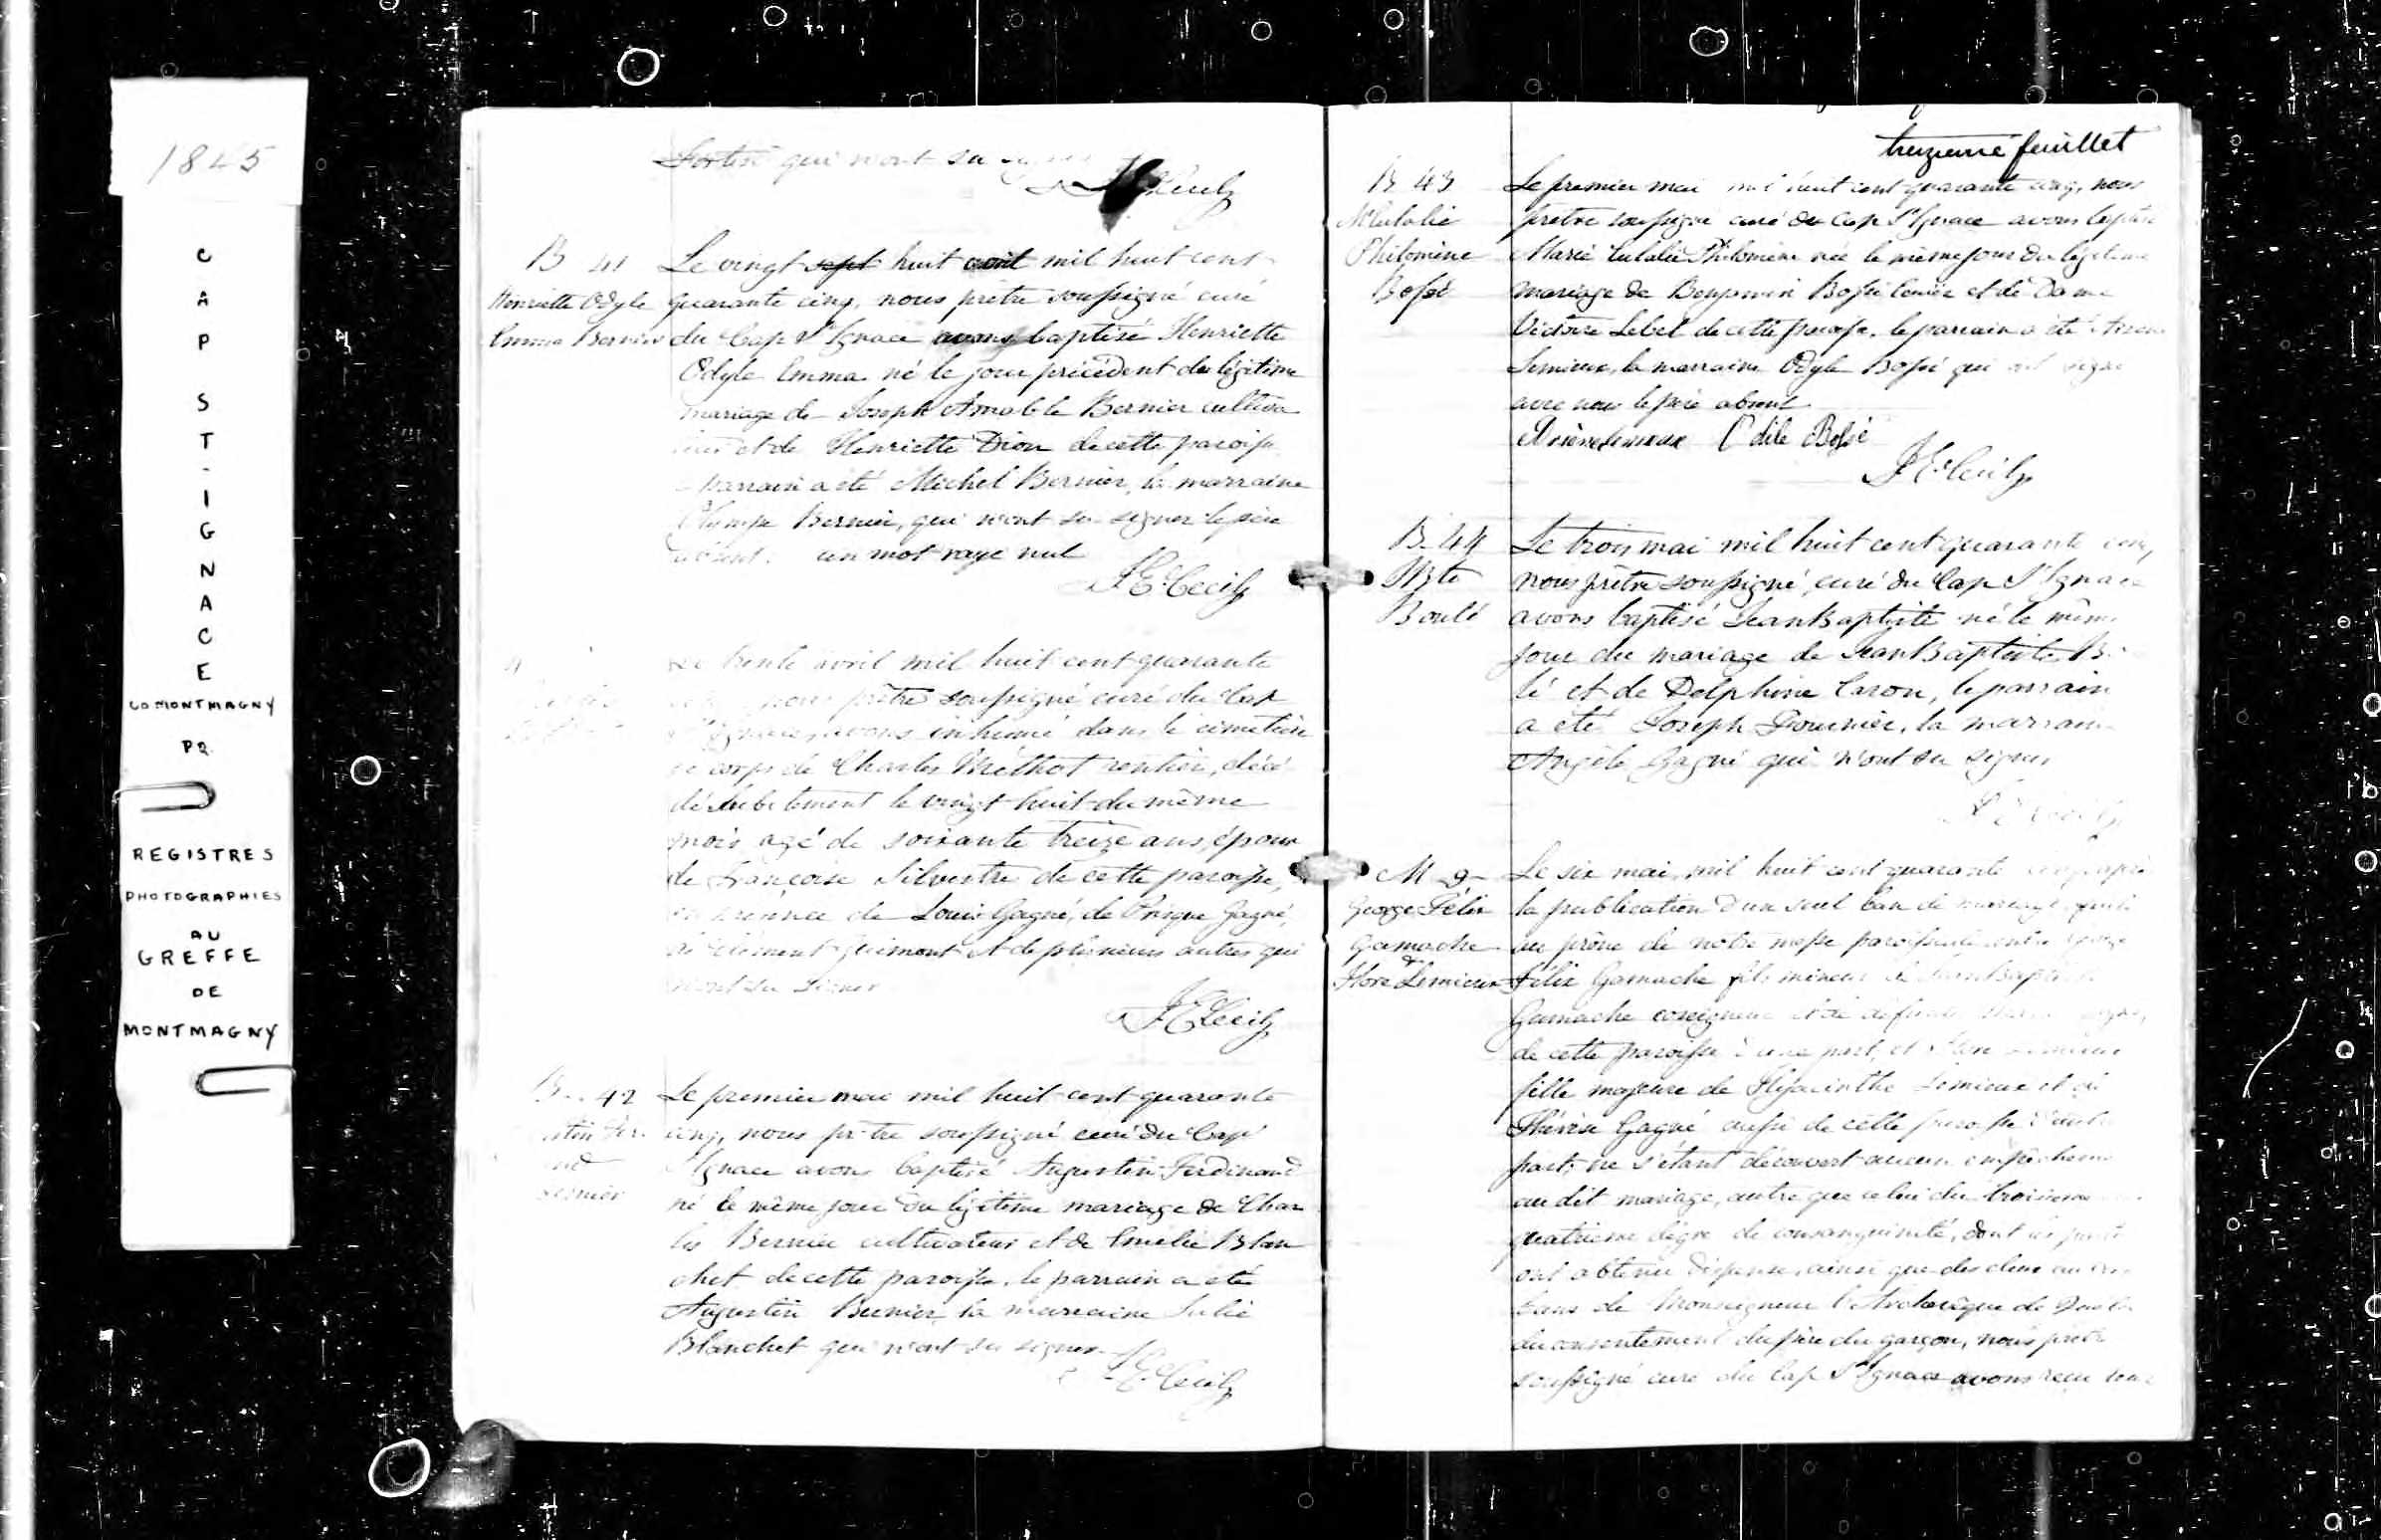 1845
CAP ST-IGNACE
CO MONTMAGNY
PQ.
REGISTRES
PHOTOGRAPHIES
AU
GREFFE
DE
MONTMAGNY
Fortin qui n'ont su
B 41
Henriette Odyle
Emma Bernier
Le vingt sept huit avril mil huit cent
quarante cinq, nous prêtre soussigné curé
du Cap St Ignace avons baptisé Henriette
Odyle Emma né le jour précédent du légitime
mariage de Joseph Amable Bernier cultiva
et de Henriette Dion de cette paroisse
parrain a été Michel Bernier, la marraine
Olympe Bernier, qui n'ont su signer le père
absent. un mot rayé nul
J E Cecily
Le trente avril mil huit cent quarante
nous prêtre soussigné curé du Cap
Ignace, avons inhumé dans le cimetière
le corps de Charles Méthot rentier, décé
dé subitement le vingt huit du même
mois agé de soixante treize ans, époux
de Françoise Silvestre de cette paroisse,
de Louis Gagné, de Prisque Gagné,
Clément Guimont et de plusieurs autres qui
n'ont su signer
J E Cecily
B. 42
Bernier
Le premier mai mil huit cent quarante
cinq, nous prêtre soussigné curé du Cap
St Ignace avons baptisé Augustin Ferdinand
né le même jour du légitime mariage de Char
les Bernier cultivateur et de Emelie Blan
chet de cette paroisse, le parrain a été
Augustin Bernier la marraine Julie
Blanchet qui n'ont su signer
J E Cecily
treizieme feuillet
B 43
M Eulalie
Philomène
Bossé
Le premier mai mil huit cent quarante cinq, nous
prêtre soussigné curé du Cap St Ignace avons baptisé
Marie Eulalie Philomène née le même jour du légitime
mariage de Benjamin Bossé et de Dame
Victoire Lebel de cette paroisse. le parrain a été Arsene
Lemieux, la marraine Odyle Bossé qui ont signé
avec nous le père absent
Arsène Lemieux Odile Bossé
J E Cecily
B. 44
JBte
Boulé
Le trois mai mil huit cent quarante cinq,
nous prêtre soussigné, curé du Cap St Ignace
avons baptisé Jean Baptiste né le même
jour du mariage de Jean Baptiste
lé et de Delphine Caron, le parrain
a été Joseph Fournier, la marraine
Angèle Gagné qui n'ont su signer
J E Cecily
M 9
George Félix
Gamache
&
Flore Lemieux
Le six mai, mil huit cent quarante cinq après
la publication d'un seul ban de mariage
au prône de notre messe paroissiale entre George
Félix Gamache fils mineur de Jean Baptiste
Gamache coseigneur et de défunte
de cette paroisse d'une part, et Flore Lemieux
fille majeure de Hyacinthe Lemieux et de
Thérèse Gagné aussi de cette paroisse d'autre
part; ne s'étant découvert aucun empêchement
au dit mariage, autre que celui du troisième
quatrième dégré de consanguinité, dont les parties
ont obtenu dispense, ainsi que des deux autres
bans de Monseigneur l'Archevêque de Québec
du consentement du père du garçon, nous prêtre
soussigné curé du Cap St Ignace avons reçu leur